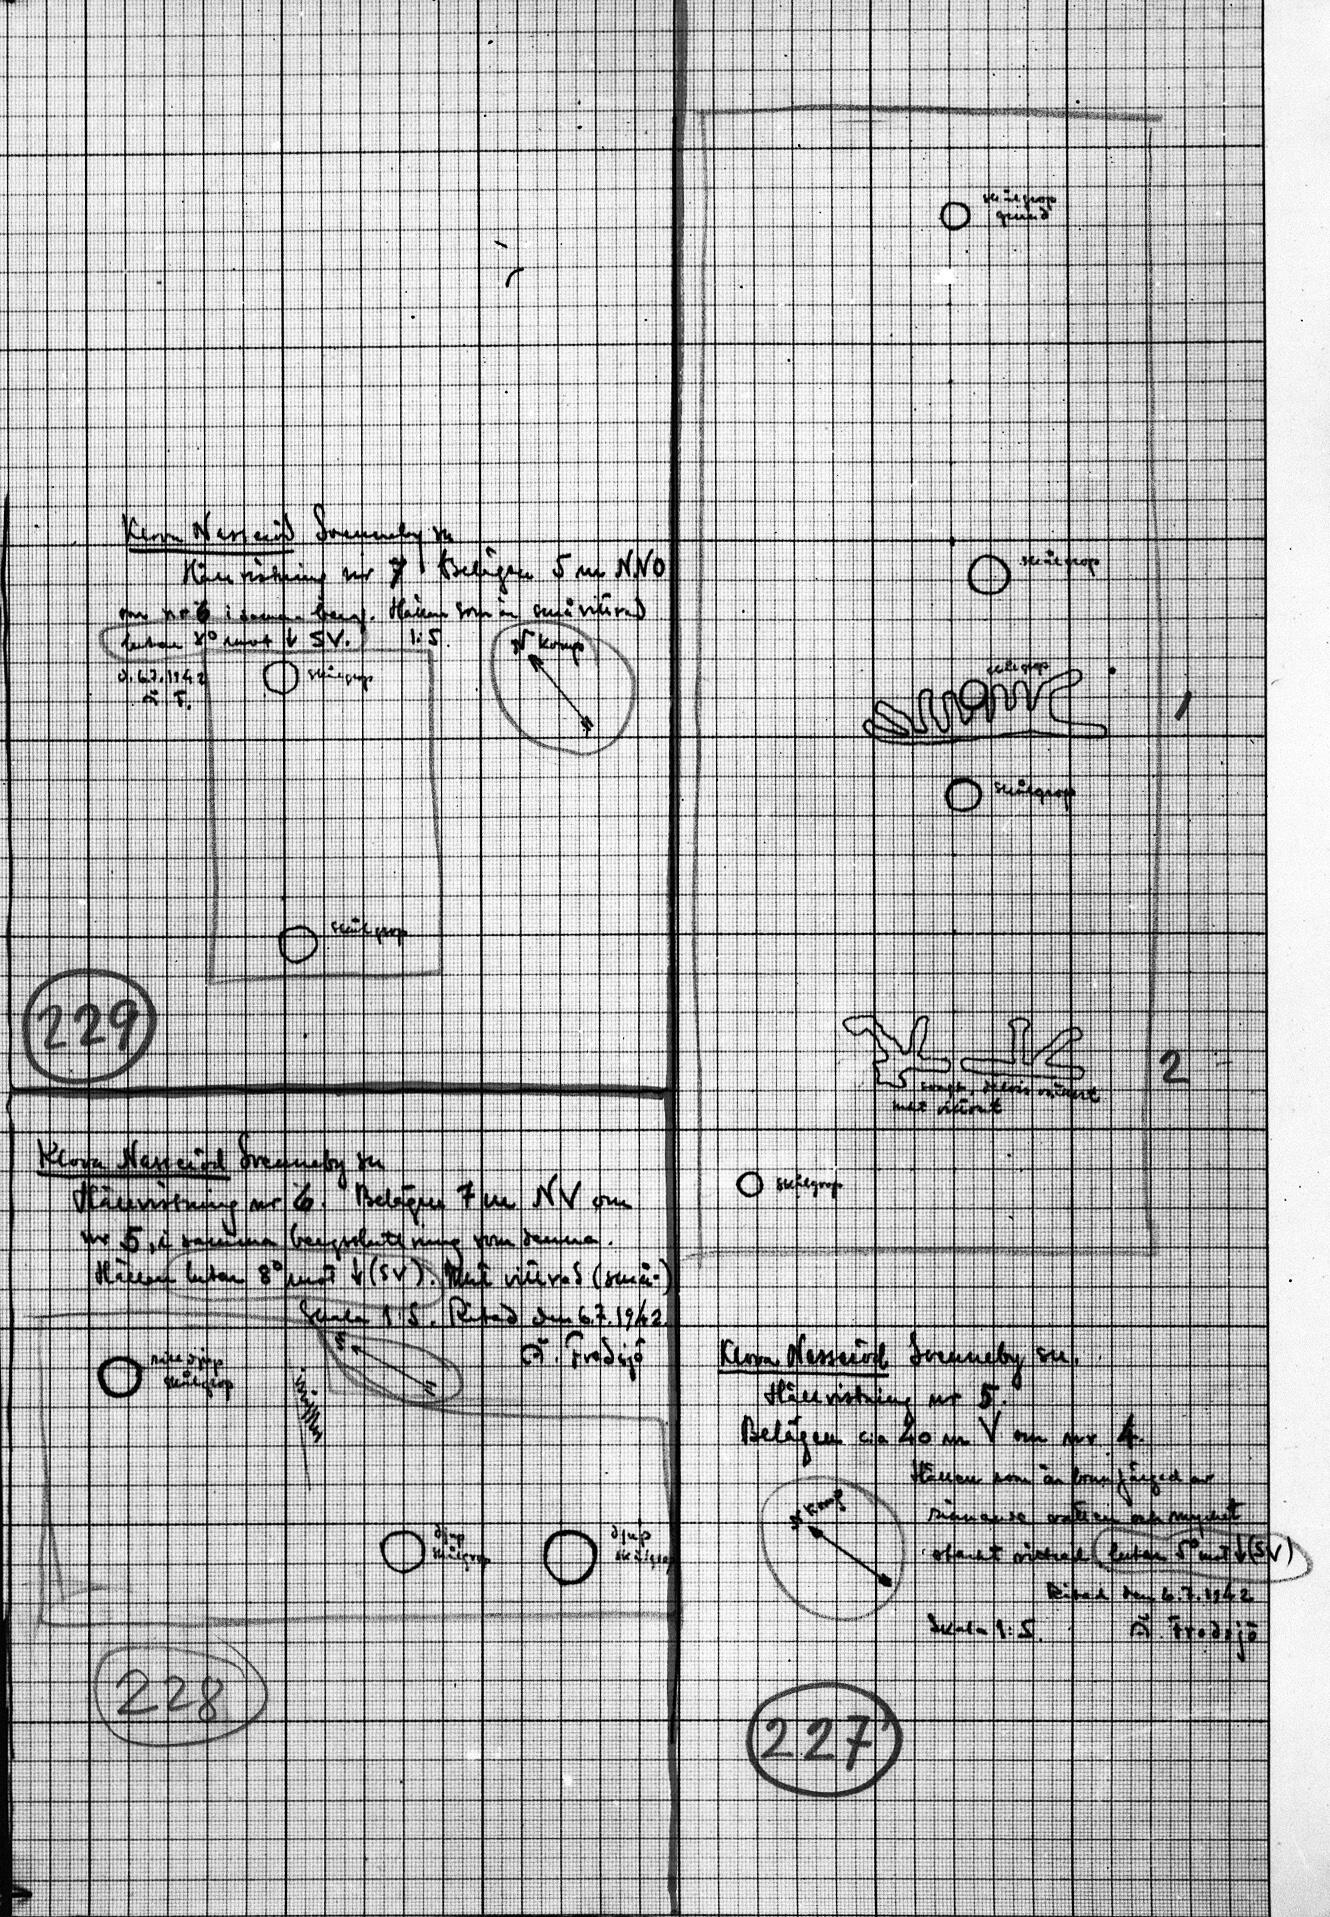 Klova Nasseröd Svenneby sn
Hällristning nr 7. Belägen 5 m NNO
om nr 6 i samma berg. Hällen som är småvittrad
lutar 8° mot ↓ SV. 1:5.
d. 6.7.1942
Å. F.
N komp
skålgrop
skålgrop
229
Klova Nasseröd Svenneby sn
Hällristning nr 6. Belägen 7 m NV om
nr 5, i samma bergsluttning som denna.
Hällen lutar 8° mot ↓ (SV). vittrad (små-)
Skala 1:5. Ritad den 6.7.1942.
Å. Fredsjö
djup
skålgrop
djup
skålgrop
djup
skålgrop
228
skålgrop
grund
skålgrop
skålgrop
1
skålgrop
2
delvis
vittrat
skålgrop
Klova Nasseröd Svenneby sn.
Hällristning nr 5.
Belägen c:a 40 m V om nr 4.
Hällen som är brunfärgad av
rinnande vatten och mycket
starkt vittrad lutar 5° mot ↓ (SV)
Ritad den 6.7.1942
Skala 1:5. Å. Fredsjö
N komp
227